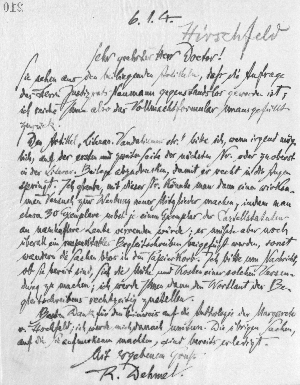 6.1.4.
Hirschfeld
Sehr geehrter Herr Doctor!
Sie sehen aus den beiliegenden daß die Anfrage
des Herrn Justizrats Naumann gegenstandslos geworden ist;
ich reiche Ihnen also das Vollmachtformular unausgefüllt
zurück.
Den Artikel „Literar. Vandalismus etc.“ bitte ich, wenn irgend mög-
lich, auf der ersten und zweiten Seite der nächsten Nr. oder zu oberst
in der Literar. Beilage abzudrucken, damit er recht in die Augen
springt. Ich glaube, mit dieser Nr. könnte man dann eine wirksa-
men zur Werbung neuer Mitglieder machen, indem man
etwa 30 Exemplare nebst je einem Exemplar der
an namhafte Leute versenden würde; es müßten aber noch
überall ein Begleitschreiben beigefügt werden, sonst
wandern die Sachen blos in den Papierkorb. Ich bitte um Nachricht,
ob Sie bereit sind, sich die Mühe und Kosten einer solchen Versen-
dung zu machen; ich werde Ihnen dann den Wortlaut des Be-
gleitschreibens rechtzeitig zustellen.
Besten Dank für den Hinweis auf die Anthologie der Margarete
v. ich werde mich danach umsehen. Die übrigen Sachen,
auf die Sie aufmerksam machten, sind bereits erledigt.
Mit ergebenem Gruß
R. Dehmel.